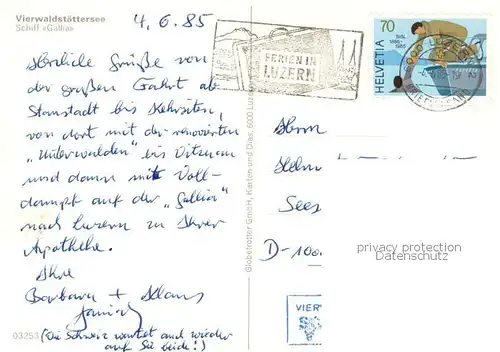 Vierwaldstättersee
Schiff «Gallia»
4.6.85
Herzliche Grüße von
der großen Fahrt ab
Stansstadt bis Kehrsiten,
von dort mit der renovierten
"Unterwalden" bis Vitznau
und dann mit Voll-
dampf auf der "Gallia"
nach Luzern zu Ihrer
Apotheke.
Ihre
Barbara + Klaus
(Die Schweiz wartet auch wieder
auf Sie beide!)
03253
Globetrotter GmbH, Karten und Dias, 6000 Luzern
FERIEN IN
LUZERN
70
HELVETIA
1885-
1985
LUZERN
Herrn
Sees
D-100
privacy protection
Dateschutz
VIER